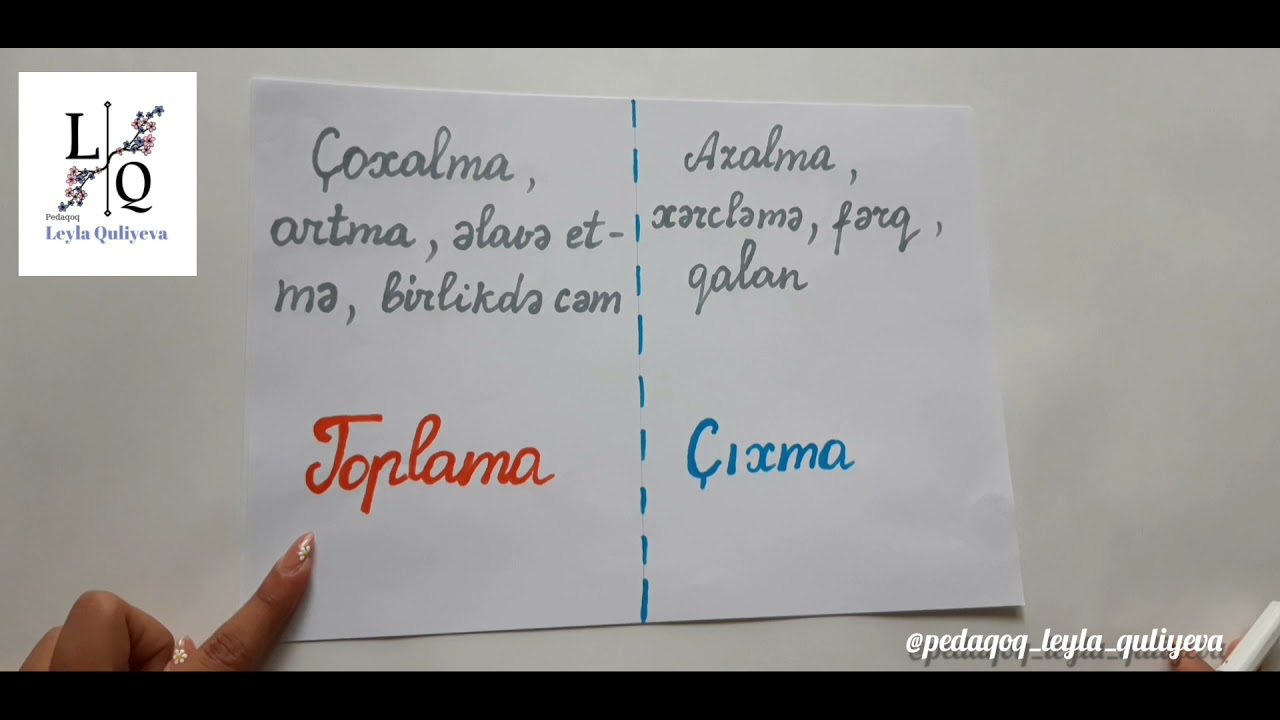 L Q
Pedaqoq
Leyla Quliyeva
Çoxalma,
artma, əlavə et-
mə, birlikdə cəm
Toplama
Azalma,
xərcləmə, fərq,
qalan
Çıxma
@pedaqoq_leyla_quliyeva